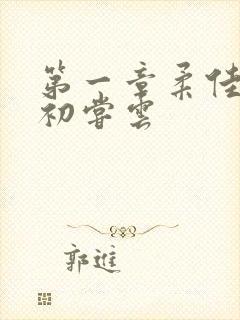 第一章柔佳
初嘗雲
郭進